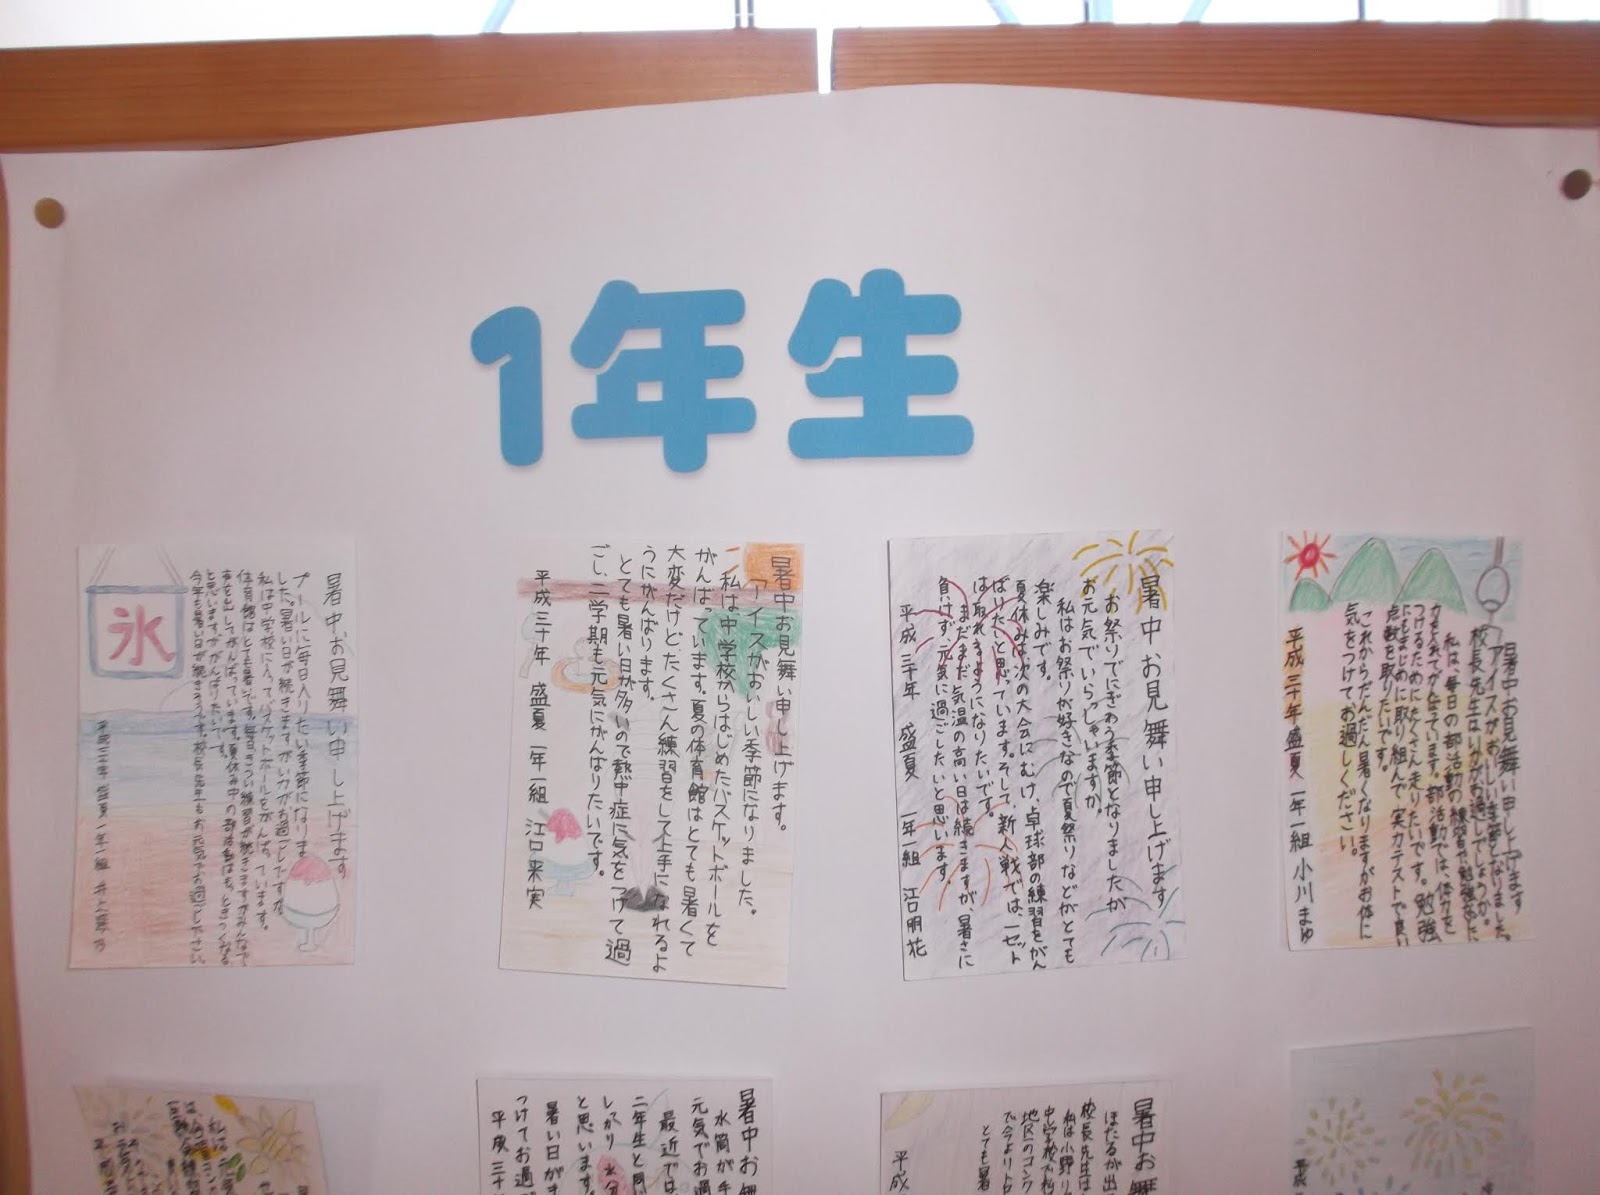 1年生
暑中お見舞い申し上げます
アイスがおいしい季節になりました。
校長先生はいかがお過しでしょうか。
私は、毎日の部活動の練習や勉強をした
つけるためにたくさん走りたいです。勉強
にもまじめに取り組んで、実力テストで良い
点数を取りたいです。
これからだんだん暑くなりますがお体に
気をつけてお過しください。
平成三十年盛夏 一年一組 小川まゆ
暑中お見舞い申し上げます
お祭りでにぎわう季節となりましたが
お元気でいらっしゃいますか。
私はお祭りが好きなので夏祭りなどがとても
楽しみです。
夏休みは次の大会にむけ、卓球部の練習をがん
ばりたいと思っています。そして、新人戦では、一セット
は取れるようになりたいです。
まだまだ気温の高い日は続きますが、暑さに
負けず、元気に過ごしたいと思います。
平成三十年 盛夏 一年一組 江口明花
暑中お見舞い申し上げます。
アイスがおいしい季節になりました。
私は中学校からはじめたバスケットボールを
がんばっています。夏の体育館はとても暑くて
大変だけど、たくさん練習をして上手になれるよ
うにがんばります。
とても暑い日が多いので熱中症に気をつけて過
ごし、二学期も元気にがんばりたいです。
平成三十年 盛夏 一年一組 江口来実
暑中お見舞い申し上げます
プールに毎日入りたい季節になりま
した。暑い日が続きますがいかがお過しですか。
私は中学校に入ってバスケットボールをがんばっています。
体育館はとても暑いです。毎日きつい練習が続きますがみんなで
声を出してがんばっています。夏休み中の部活動はもっときつくなる
と思いますががんばりたいです。
今年も暑い日が続きそうです。校長先生もお元気でお過ごしください。
平成三十年 盛夏 一年一組 井上
氷
暑中お
ほたるが出
校長先生は
私は小野り
中学校では
地区のコンク
で今よりトロ
とても暑
平成
暑中お
水筒が手
元気でお過
最近では
二年生と門
しっかり水分
と思います。
暑い日がき
つけてお過
平成三十
平成